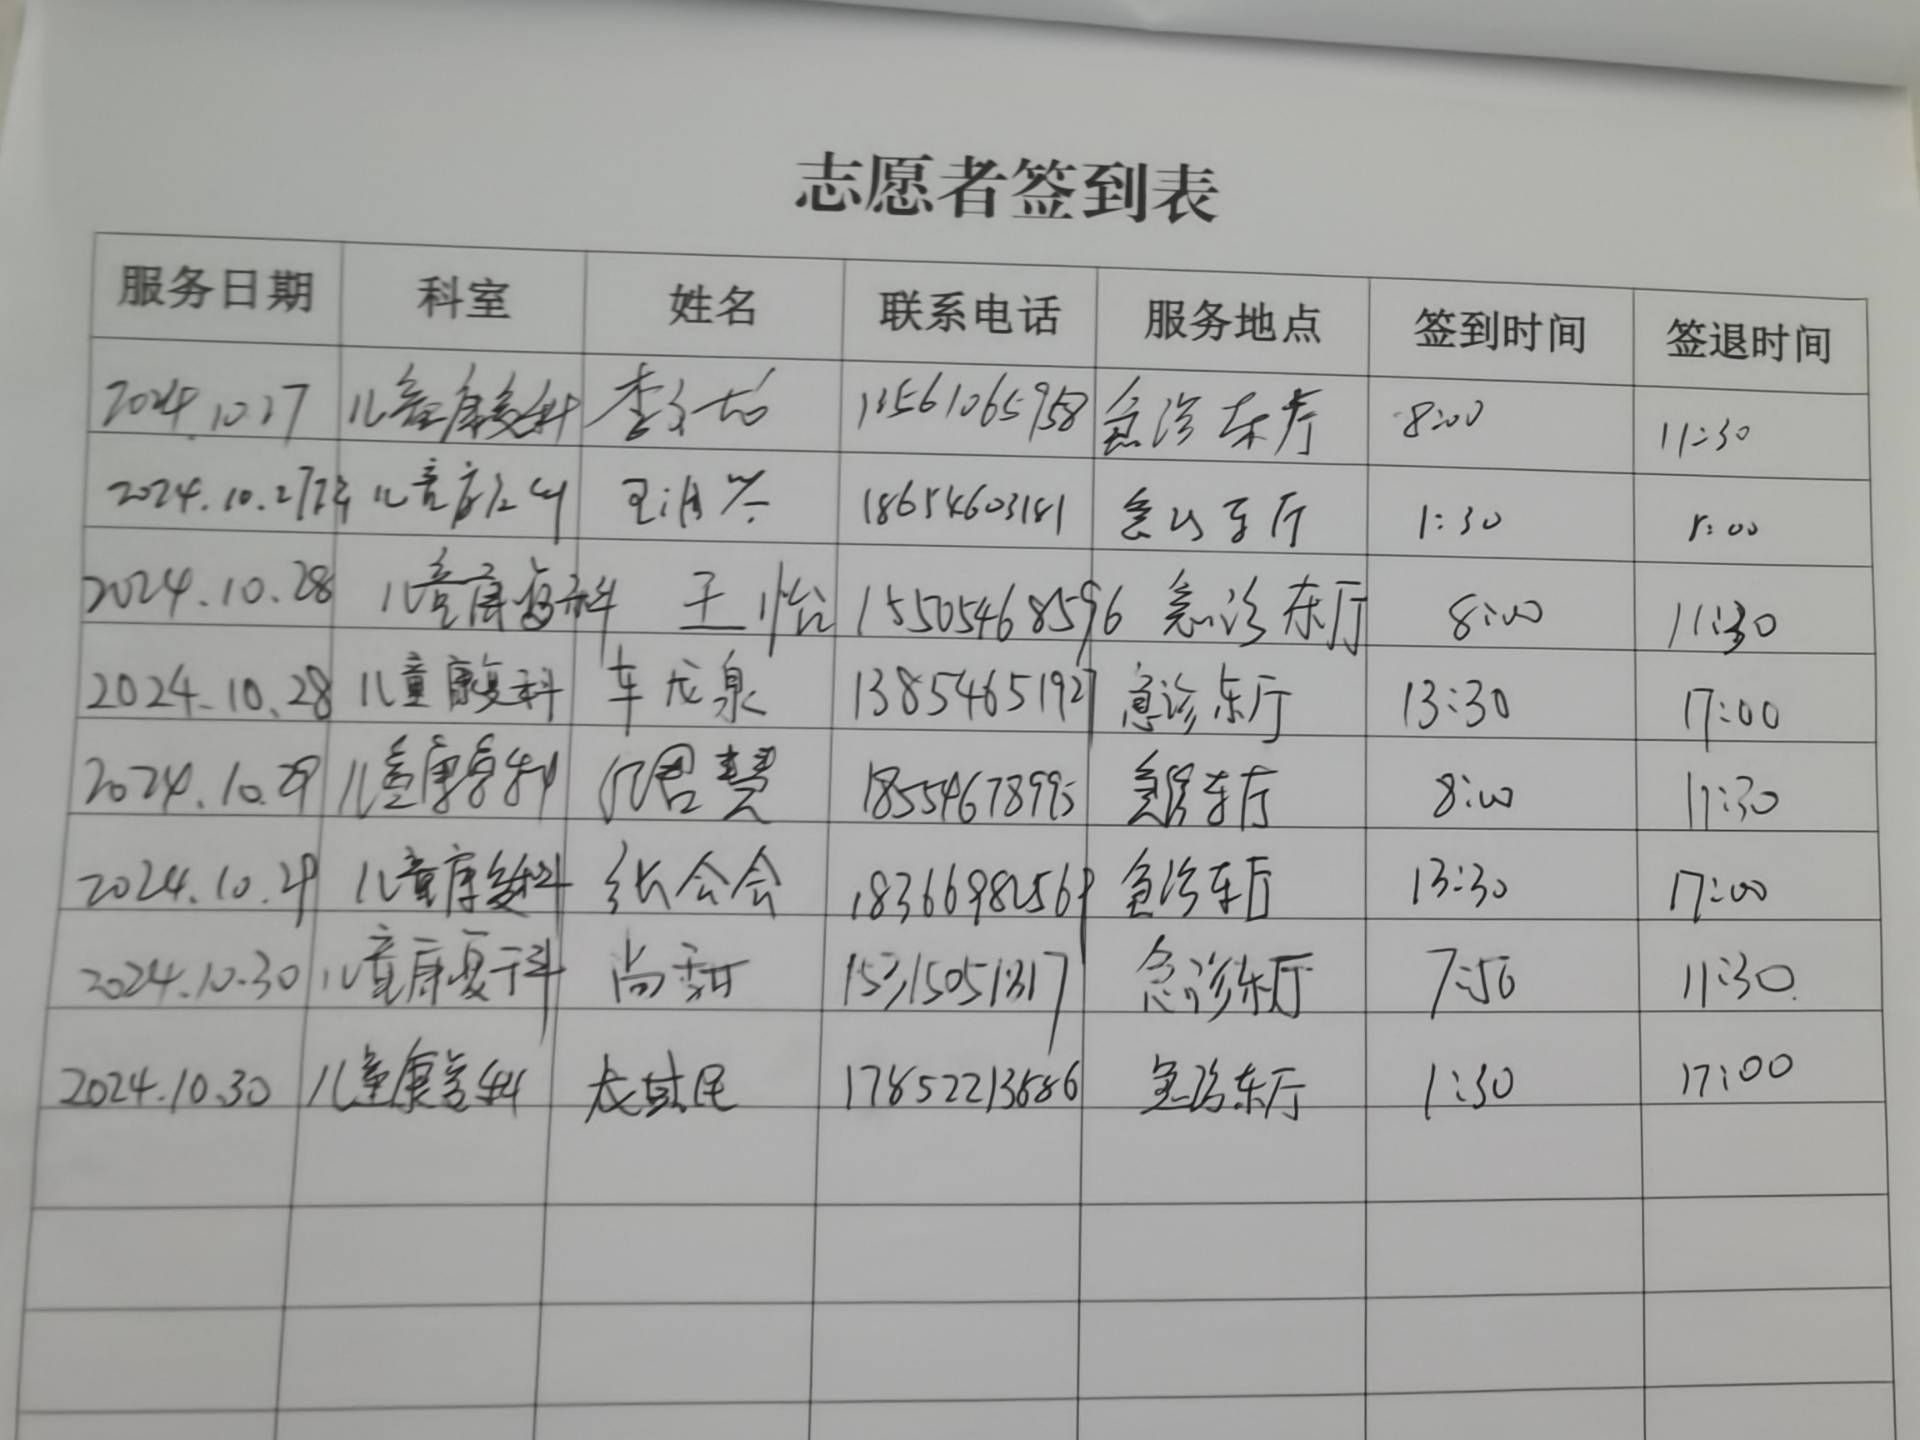 志愿者签到表
服务日期 科室 姓名 联系电话 服务地点 签到时间 签退时间
2024.10.27 儿童康复科 李 13561065958 急诊东厅 8:00 11:30
2024.10.27 儿童康复科 王 18654603181 急诊东厅 1:30 5:00
2024.10.28 儿童康复科 王怡 15505468596 急诊东厅 8:00 11:30
2024.10.28 儿童康复科 车龙泉 13854651927 急诊东厅 13:30 17:00
2024.10.29 儿童康复科 18554678995 急诊东厅 8:00 11:30
2024.10.29 儿童康复科 张会会 急诊东厅 13:30 17:00
2024.10.30 儿童康复科 尚甜 15315051317 急诊东厅 7:50 11:30
2024.10.30 儿童康复科 17852213686 急诊东厅 1:30 17:00